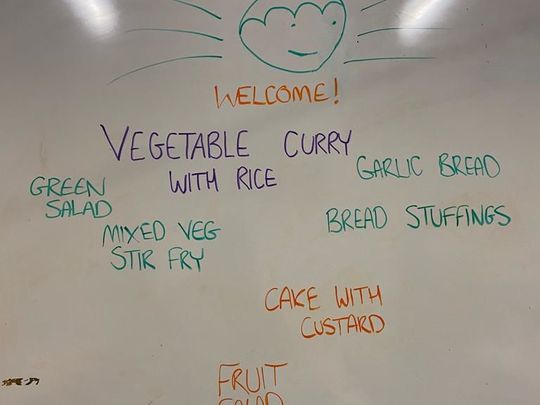 WELCOME!
VEGETABLE CURRY
WITH RICE
GARLIC BREAD
GREEN
SALAD
MIXED VEG
STIR FRY
BREAD STUFFINGS
CAKE WITH
CUSTARD
FRUIT
SALAD